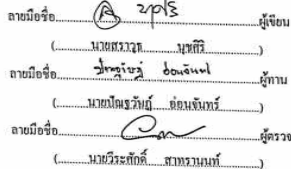 ลายมือชื่อ ผู้เขียน
(นายสราวุธ นุชศิริ)
ลายมือชื่อ ผู้ทาน
(นายปัณฐวันฎ์ อ่อนจันทร์)
ลายมือชื่อ ผู้ตรวจ
(นายวีระศักดิ์ สาทรานนท์)